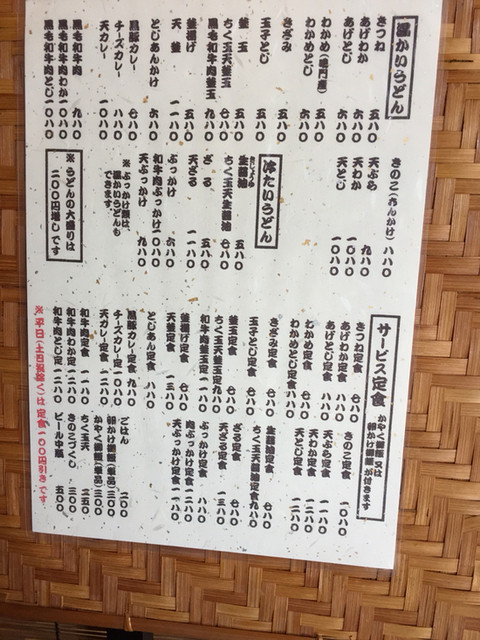 温かいうどん
きつね 五八〇
あげわか 六八〇
あげとじ 六八〇
わかめ(鳴門産) 五八〇
わかめとじ 六八〇
きざみ 五八〇
玉子とじ 五八〇
釜玉 五八〇
ちく玉天釜玉 七八〇
黒毛和牛肉釜玉 九八〇
釜揚げ 五八〇
天釜 一一八〇
とじあんかけ 六八〇
黒豚カレー 七八〇
チーズカレー 八八〇
天カレー 一〇八〇
黒毛和牛肉 九八〇
黒毛和牛肉わか 一〇八〇
黒毛和牛肉とじ 一〇八〇
きのこ(あんかけ) 八八〇
天ぷら 九八〇
天わか 一〇八〇
天とじ 一〇八〇
冷たいうどん
生醤油 五八〇
ちく玉天生醤油 七八〇
ざる 五八〇
天ざる 一一八〇
ぶっかけ 六八〇
和牛肉ぶっかけ 一〇八〇
天ぶっかけ 九八〇
※ぶっかけ類は、
温かいうどんも
できます。
※うどんの大盛りは
二〇〇円増しです。
サービス定食
かやく御飯又は
卵かけ御飯が付きます
きつね定食 七八〇
あげわか定食 八八〇
あげとじ定食 八八〇
わかめ定食 七八〇
わかめとじ定食 八八〇
きざみ定食 七八〇
玉子とじ定食 七八〇
釜玉定食 七八〇
ちく玉天玉定食 九八〇
和牛肉釜玉定食 一一八〇
釜揚げ定食 七八〇
天釜定食 一三八〇
とじあん定食 八八〇
黒豚カレー定食 九八〇
チーズカレー定食 一〇八〇
天カレー定食 一二八〇
和牛肉定食 一一八〇
和牛肉わか定食 一二八〇
和牛肉とじ定食 一二八〇
きのこ定食 一〇八〇
天ぷら定食 一一八〇
天わか定食 一二八〇
天とじ定食 一二八〇
生醤油定食 七八〇
ちく玉天醤油定食 九八〇
ざる定食 七八〇
天ざる定食 一三八〇
ぶっかけ定食 八八〇
肉ぶっかけ定食 一二八〇
天ぶっかけ定食 一一八〇
ごはん 二〇〇
卵かけ御飯(単品) 三〇〇
かやく御飯(単品) 三〇〇
ちく玉天 二五〇
きのこづくし 三〇〇
ビール中瓶 五〇〇
※平日(土日祝除く)は定食一〇〇円引きです。